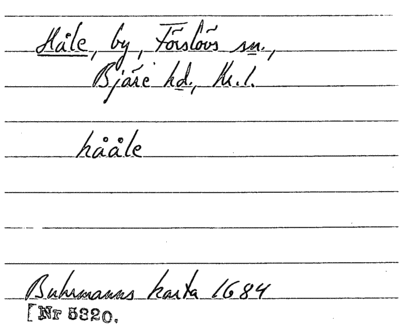 Håle, by, Förslövs sn.,
Bjäre hd., Kr. l.
hååle
Buhrmanns karta 1684
[Nr 5820.